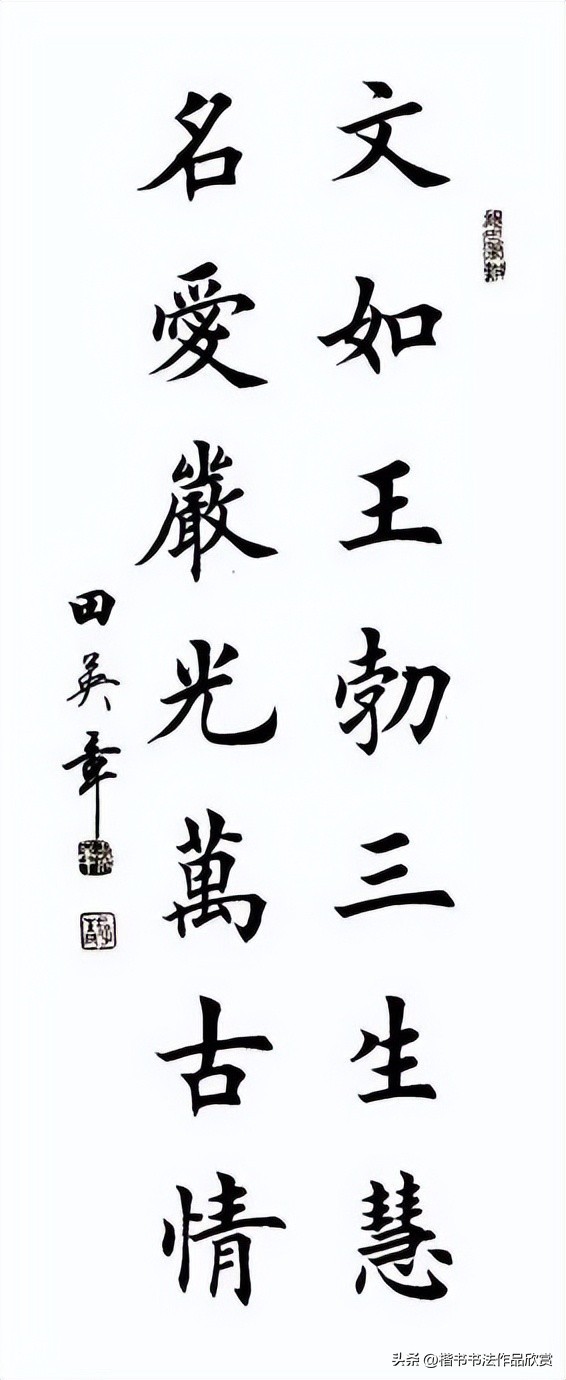 文如王勃三生慧
名愛嚴光萬古情
田英章
头条 @楷书书法作品欣赏